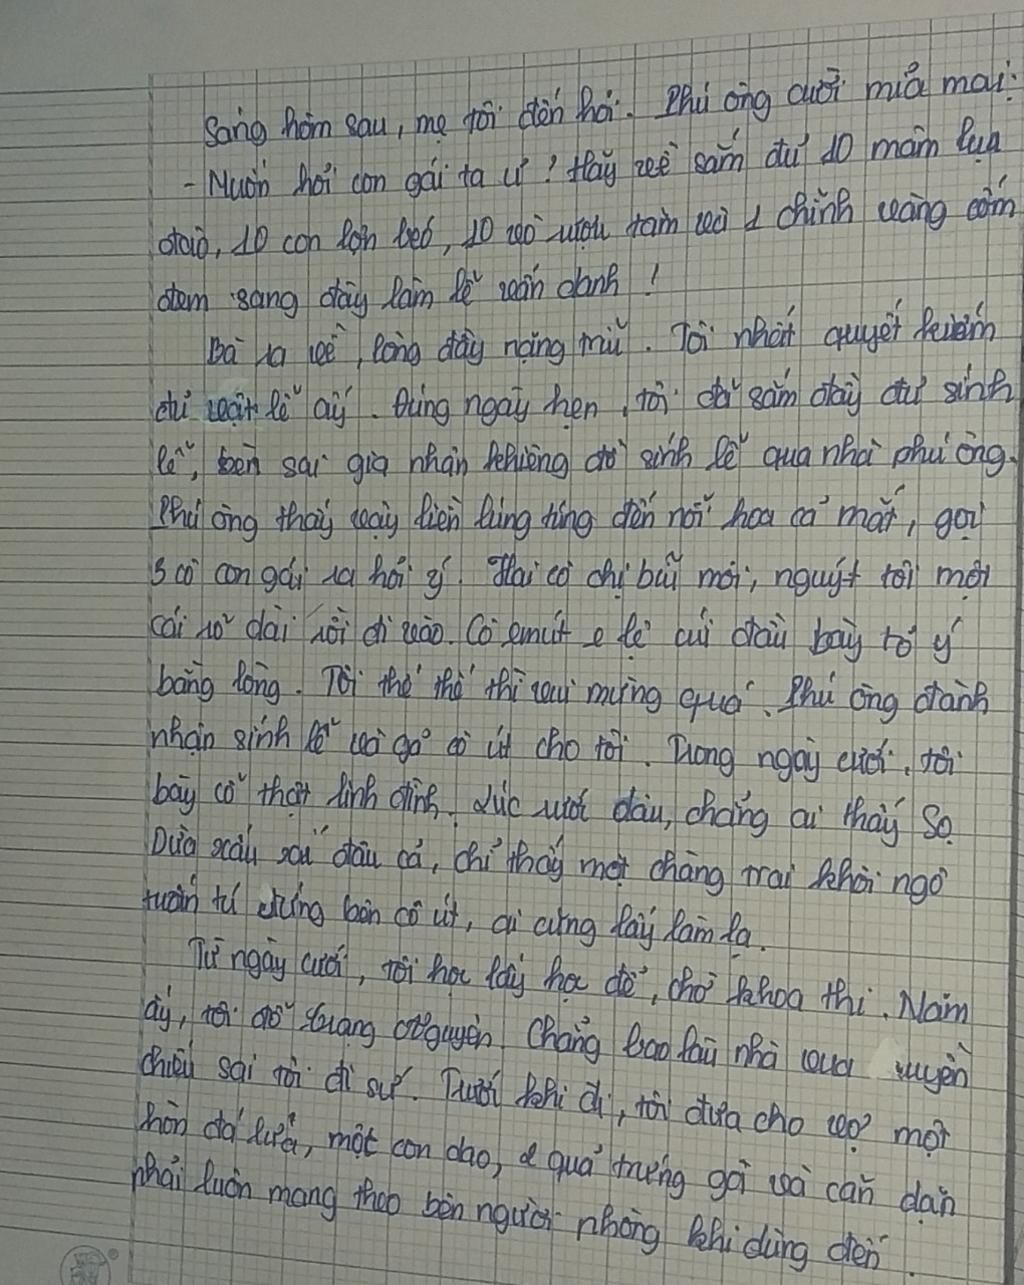 Sáng hôm sau, mẹ tôi đến hỏi. Phú ông cười mỉa mai:
- Muốn hỏi con gái ta ư? Hãy về sắm đủ 10 mâm lụa
đào, 10 con lợn béo, 10 vò rượu tăm và 1 chĩnh vàng cốm
đem sang đây làm lễ vấn danh!
Bà ra về, lòng đầy nặng trĩu. Tôi nhất quyết kiếm
đủ vật lễ ấy. Đúng ngày hẹn, tôi đã sắm đầy đủ sính
lễ, bèn sai gia nhân khiêng đồ sính lễ qua nhà phú ông.
Phú ông thấy vậy liền lúng túng đến nỗi hoa cả mắt, gọi
3 cô con gái ra hỏi ý. Hai cô chị bĩu môi, nguýt tôi một
cái rõ dài rồi đi vào. Cô em út e lệ cúi đầu bày tỏ ý
bằng lòng. Tôi thế thì vui mừng quá. Phú ông đành
nhận sính lễ và gả cô út cho tôi. Trong ngày cưới, tôi
bày cỗ thật linh đình. Lúc rước dâu, chẳng ai thấy Sọ
Dừa xấu xí đâu cả, chỉ thấy một chàng trai khôi ngô
tuấn tú đứng bên cô út, ai cũng lấy làm lạ.
Từ ngày cưới, tôi học lấy học để, chờ khoa thi. Năm
ấy, tôi đỗ trạng nguyên. Chẳng bao lâu nhà vua
chiếu sai tôi đi sứ. Trước khi đi, tôi đưa cho vợ một
hòn đá lửa, một con dao, 2 quả trứng gà và căn dặn
phải luôn mang theo bên người phòng khi dùng đến.